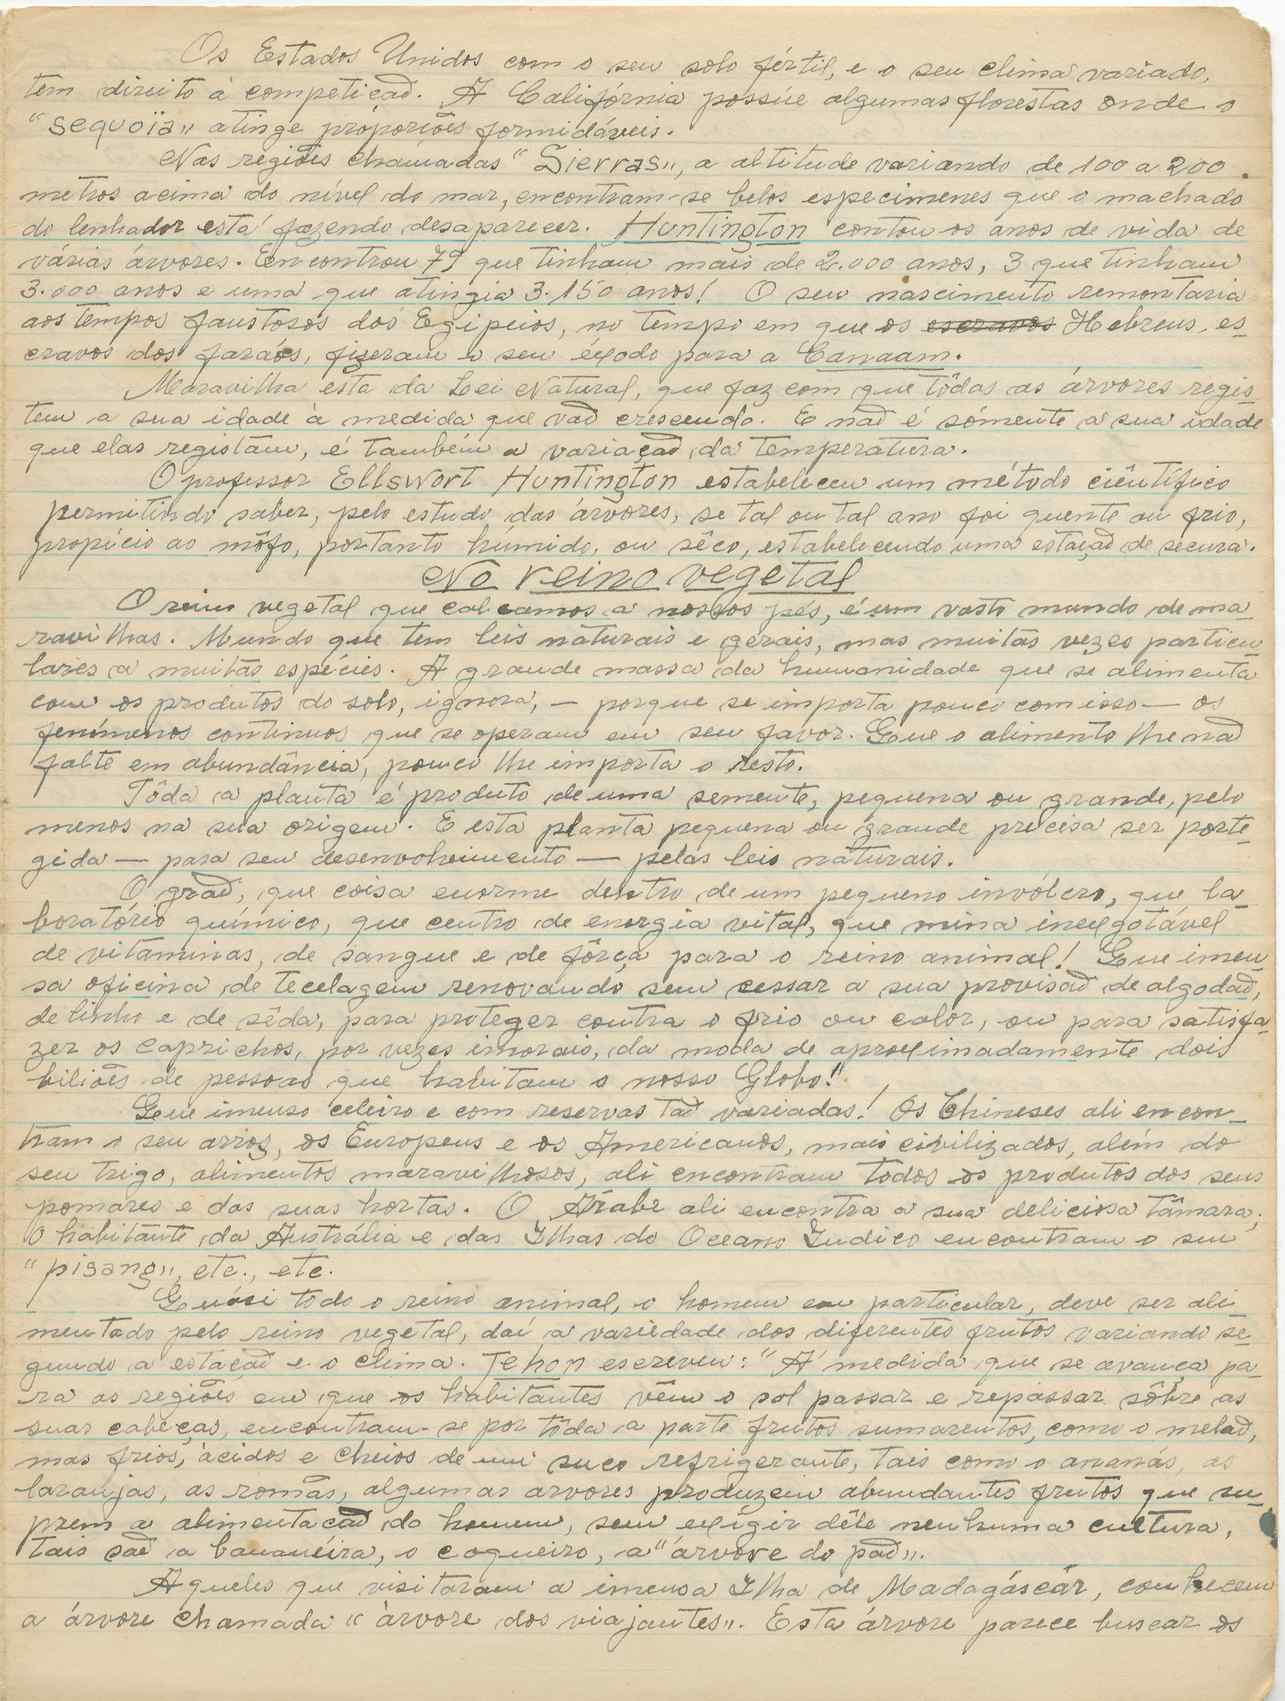 Os Estados Unidos com o seu solo fértil, e o seu clima variado,
tem direito à competição. A Califórnia possúe algumas florestas onde o
"sequoïa" atinge próporções formidáveis.
Nas regiões chamadas "Sierras", a altitude variando de 100 a 200
metros acima do nível do mar, encontram-se belos especimenes que o machado
do lenhador está fazendo desaparecer. Huntington contou os anos de vida de
várias árvores. Encontrou 79 que tinham mais de 2.000 anos, 3 que tinham
3.000 anos e uma que atingia 3.150 anos! O seu nascimento remontaria
aos tempos faustosos dos Egipcios, no tempo em que os escravos Hebreus, es-
cravos dos faraós, fizeram o seu éxodo para a Canaam.
Maravilha esta da Lei Natural, que faz com que tôdas as árvores regis-
tem a sua idade à medida que vão crescendo. E não é sómente a sua idade
que elas registam, é também a variação da temperatura.
O professor Ellswort Huntington estabeleceu um método ciêntífico
permitindo saber, pelo estudo das árvores, se tal ou tal ano foi quente ou frio,
propício ao môfo, portanto húmido, ou sêco, estabelecendo uma estação de secura.
No reino vegetal
O reino vegetal que calcamos a nossos pés, é um vasto mundo de ma-
ravilhas. Mundo que tem leis naturais e gerais, mas muitas vezes particu-
lares a muitas espécies. A grande massa da humanidade que se alimenta
com os produtos do solo, ignora, — porque se importa pouco com isso — os
fenímenos continuos que se operam em seu favor. Que o alimento lhe não
falte em abundância, pouco lhe importa o resto.
Tôda a planta é produto de uma semente, pequena ou grande, pelo
menos na sua origem. E esta planta pequena ou grande precisa ser porte-
gida — para seu desenvolvimento — pelas leis naturais.
O grão, que coisa enorme dentro de um pequeno invólcro, que la-
boratório químico, que centro de energia vital, que mina inexgotável
de vitaminas, de sangue e de fôrça para o reino animal! Que imen-
sa oficina de tecelagem renovando sem cessar a sua provisão de algodão,
de linho e de sêda, para proteger contra o frio ou calor, ou para satisfa-
zer os caprichos, por vezes imorais, da moda de aproximadamente dois
biliões de pessoas que habitam o nosso Globo!"
Que imenso celeiro e com reservas tão variadas! Os Chineses ali encon-
tram o seu arroz, os Europeus e os Americanos, mais civilizados, além do
seu trigo, alimentos maravilhosos, ali encontram todos os produtos dos seus
pomares e das suas hortas. O Árabe ali encontra a sua deliciosa tâmara;
o habitante da Austrália e das Ilhas do Oceano Indico encontram o seu
"pisang", etc., etc.
Quási todo o reino animal, o homem em particular, deve ser ali-
mentado pelo reino vegetal, daí a variedade dos diferentes frutos variando se-
gundo a estação e o clima. Jehon escreveu: "Á medida que se avança pa-
ra as regiões em que os habitantes vêm o sol passar e repassar sôbre as
suas cabeças, encontram-se por tôda a parte frutos sumarentos, como o melão,
mas frios, ácidos e cheios de um suco refrigerante, tais como o ananás, as
laranjas, as romãs, algumas arvores produzem abundantes frutos que su-
prem a alimentação do homem, sem exígir dêle nenhuma cultura,
tais são a bananéira, o coqueiro, a "árvore do pão".
Aqueles que visitaram a imensa Ilha de Madagáscár, conhecem
a árvore chamada "árvore dos viajantes". Esta árvore parece buscar os